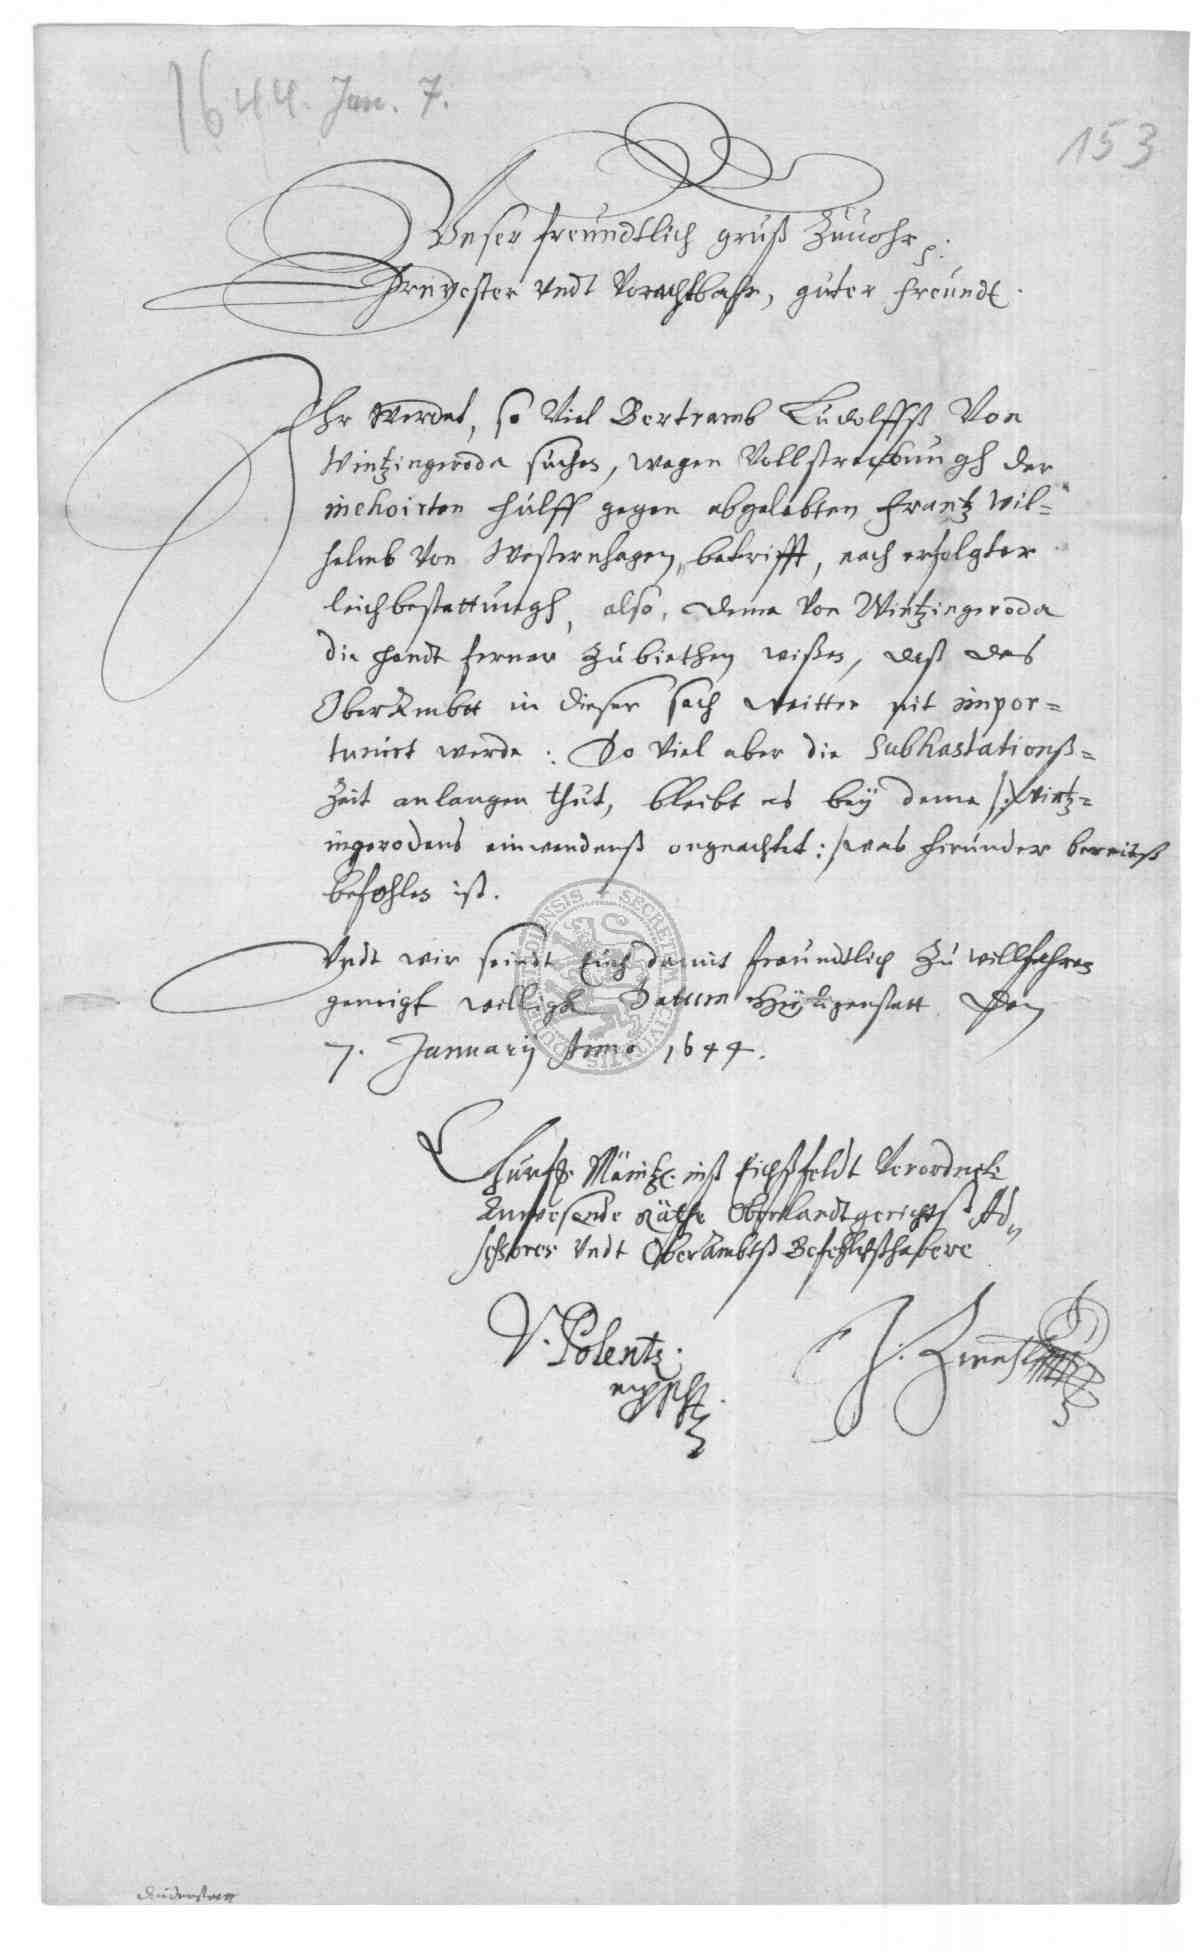 1644. Jan. 7.
153
Unser freundtlich gruß Zuuohr
Ernvester undt Vorachtbahr, guter freundt.
Ihr werdet, so Viel Bertramb Ludolffß Von
Wintzingeroda suchen, wegen Vollstreckungh der
inchoirten hülff gegen abgelebten Frantz Wil=
helmb Von Westernhagen, betrifft, nach erfolgter
leichbestattungh, also, deme Von Wintzingeroda
die handt ferner Zu biethen wißen, daß das
OberAmbtt in dieser sach weitter nit impor=
tunirt werde: So Viel aber die Subhastationß=
Zeit anlangen thut, bleibt es beÿ deme /:Wintz=
ingerodens einwendenß ongeachtet:/ was hirunder bereitß
befohlen ist.
Undt wir seindt Euch damit freundtlich Zu willfahren
geneigt willigh Datum Heÿligenstatt Den
7. Januarij Anno 1644.
Churf. Mäintz. inß Eichßfeldt Verordnete
Anwesende Räthe Oberlandtgerichtß Ad
sessores Undt OberAmbtß Befehlchßhabere
V. Polentz.
mppst.
J. Zwehl
Duderstatt
SECRET CIVITATIS